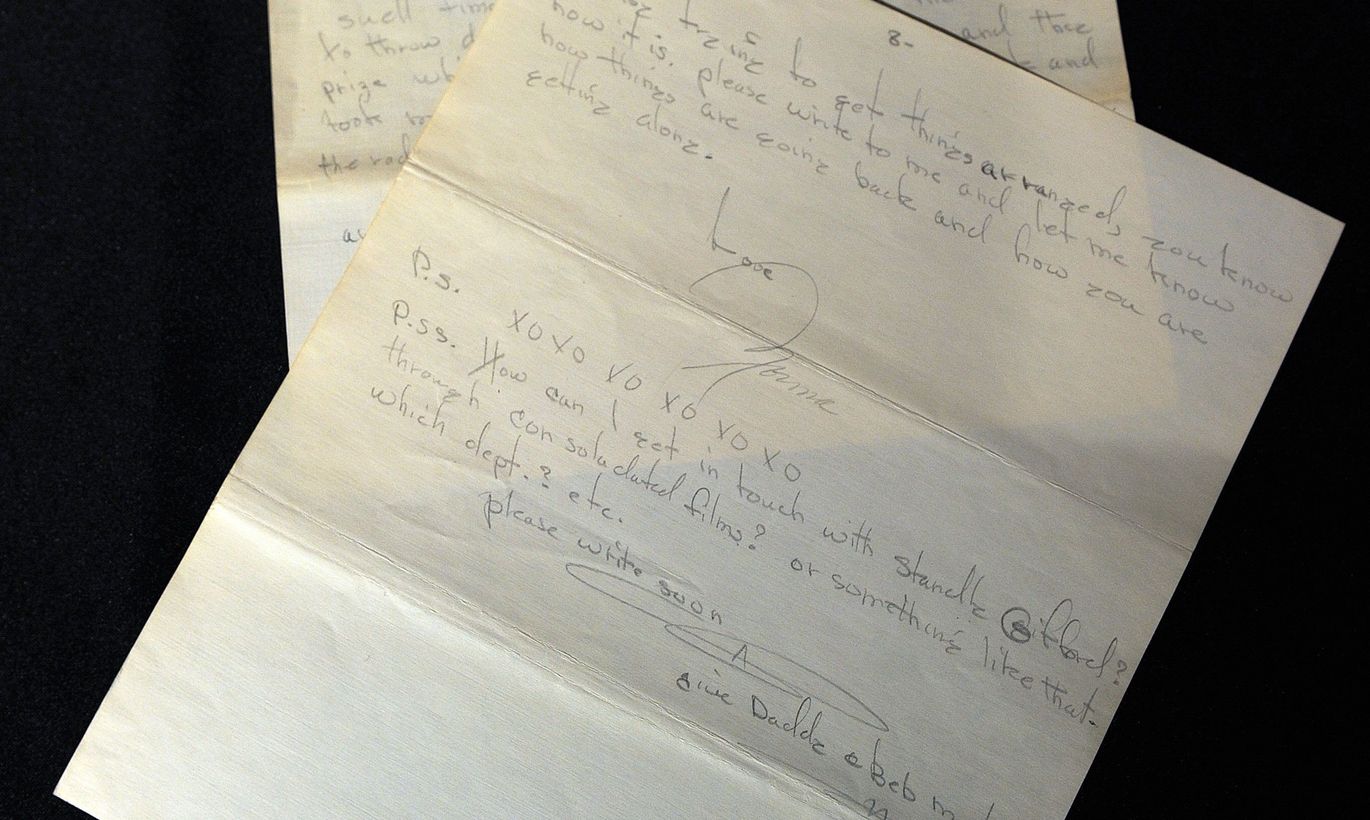 suell time
to throw d
prize whi
took
the rod
and thoe
and
8-
trying to get things arranged, you know
how it is. please write to me and let me know
how things are going back and how you are
getting along.
Love
Norma
P.s. XOXO XO XO XO XO
P.ss. How can I get in touch with Standly Gifford?
through consoladated films? or something like that.
which dept.? etc.
please write soon
Give Daddy & Beb